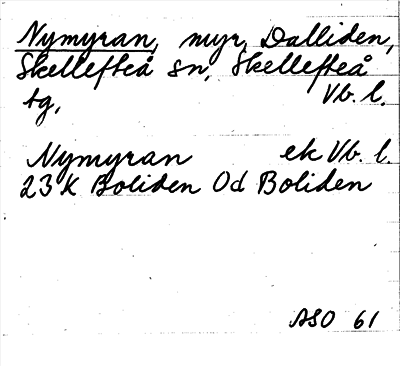 Nymyran, myr, Dalliden,
Skellefteå sn, Skellefteå
tg, Vb. l.
Nymyran ek Vb. l.
23 K Boliden Od Boliden
ASO 61